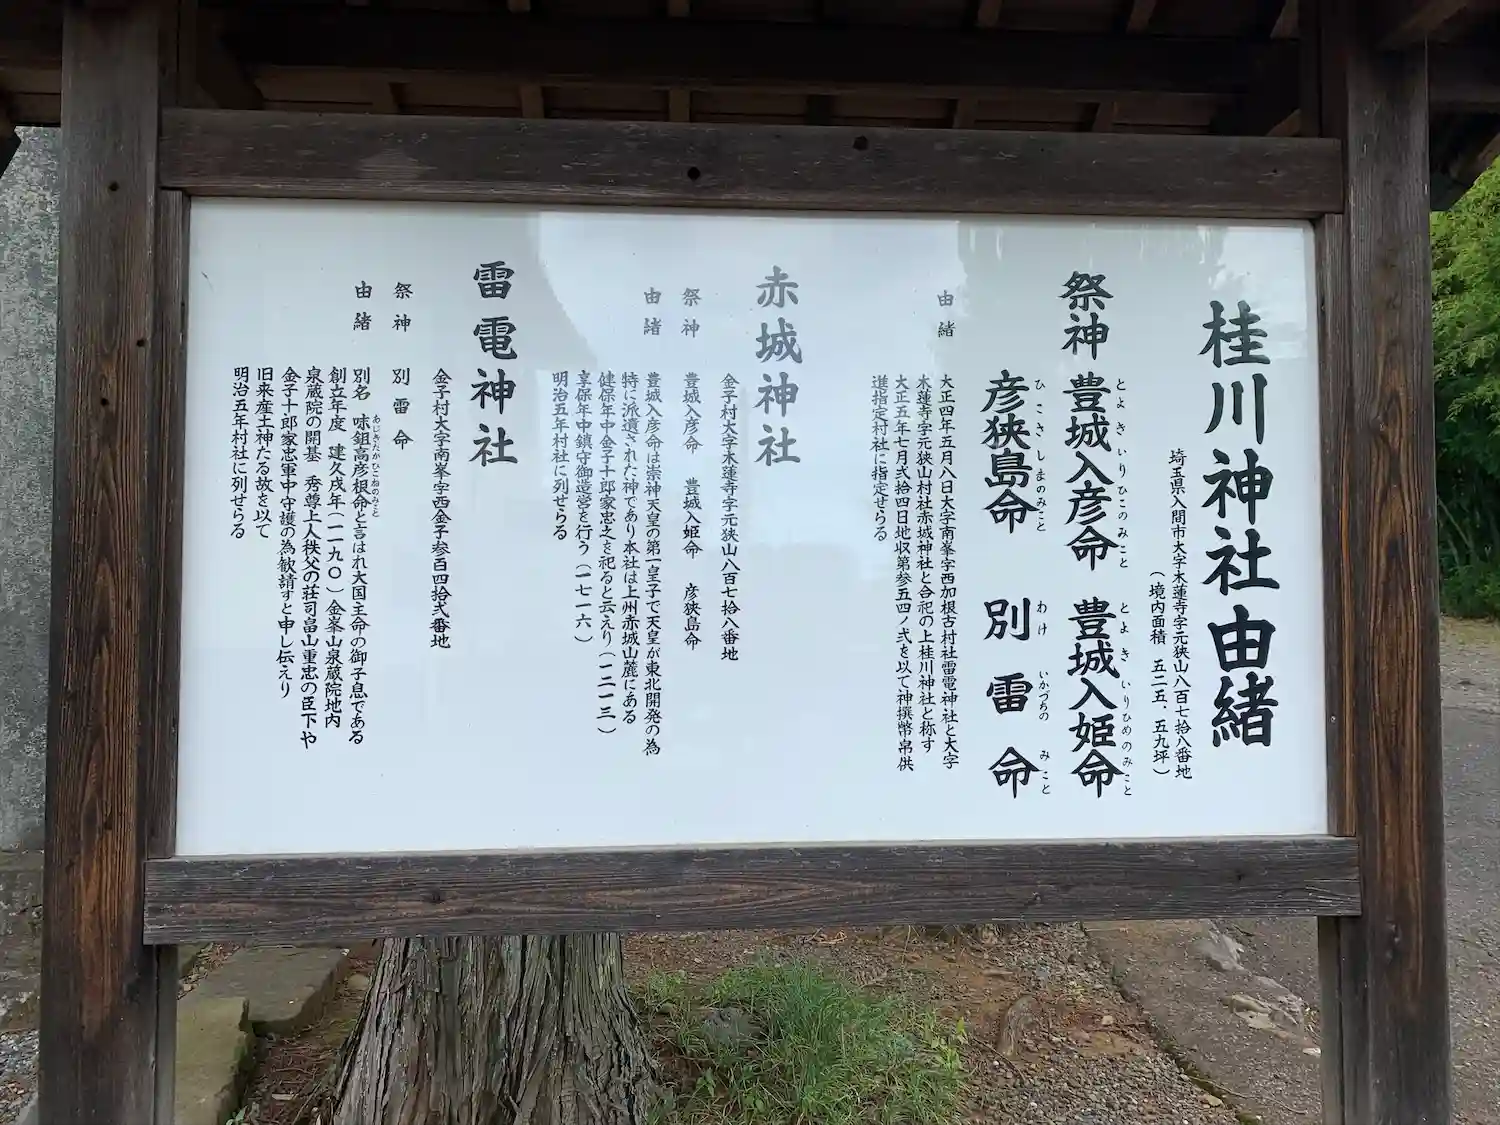 桂川神社由緒
埼玉県入間市大字木蓮寺字元狭山八百七拾八番地
(境内面積 五二五.五九坪)
祭神 豊城入彦命 豊城入姫命
とよきいりひこのみこと とよきいりひめのみこと
彦狭島命 別雷命
ひこさしまのみこと わけいかづちのみこと
由緒
大正四年五月八日大字南峯字西加根古村社雷電神社と大字
木蓮寺字元狭山村社赤城神社と合祀の上桂川神社と称す
大正五年七月弍拾四日地収第参五四ノ弍を以て神撰幣帛供
進指定村社に指定せらる
赤城神社
金子村大字木蓮寺字元狭山八百七拾八番地
祭神 豊城入彦命 豊城入姫命 彦狭島命
由緒 豊城入彦命は崇神天皇の第一皇子で天皇が東北開発の為
特に派遣された神であり本社は上州赤城山麓にある
健保年中金子十郎家忠之を祀ると云えり(一二一三)
享保年中鎮守御造営を行う(一七一六)
明治五年村社に列せらる
雷電神社
金子村大字南峯字西金子参百四拾弍番地
祭神 別雷命
由緒 別名 味鉏高彦根命と言はれ大国主命の御子息である
あじきたかひこねのみこと
創立年度 建久戌年(一一九〇)金峯山泉蔵院地内
泉蔵院の開基 秀尊上人秩父の荘司畠山重忠の臣下や
金子十郎家忠軍中守護の為歓請すと申し伝えり
旧来産土神たる故を以て
明治五年村社に列せらる